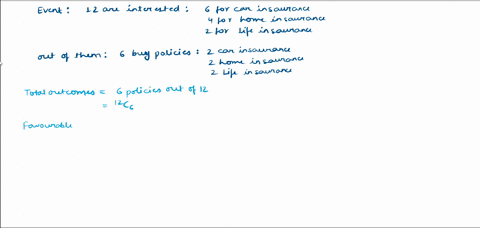 Event: 12 are interested: 6 for car insaurance
4 for home insaurance
2 for life insaurance
out of them: 6 buy policies: 2 car insaurance
2 home insaurance
2 Life insaurance
Total outcomes = 6 policies out of 12
= ¹²C₆
Favourable